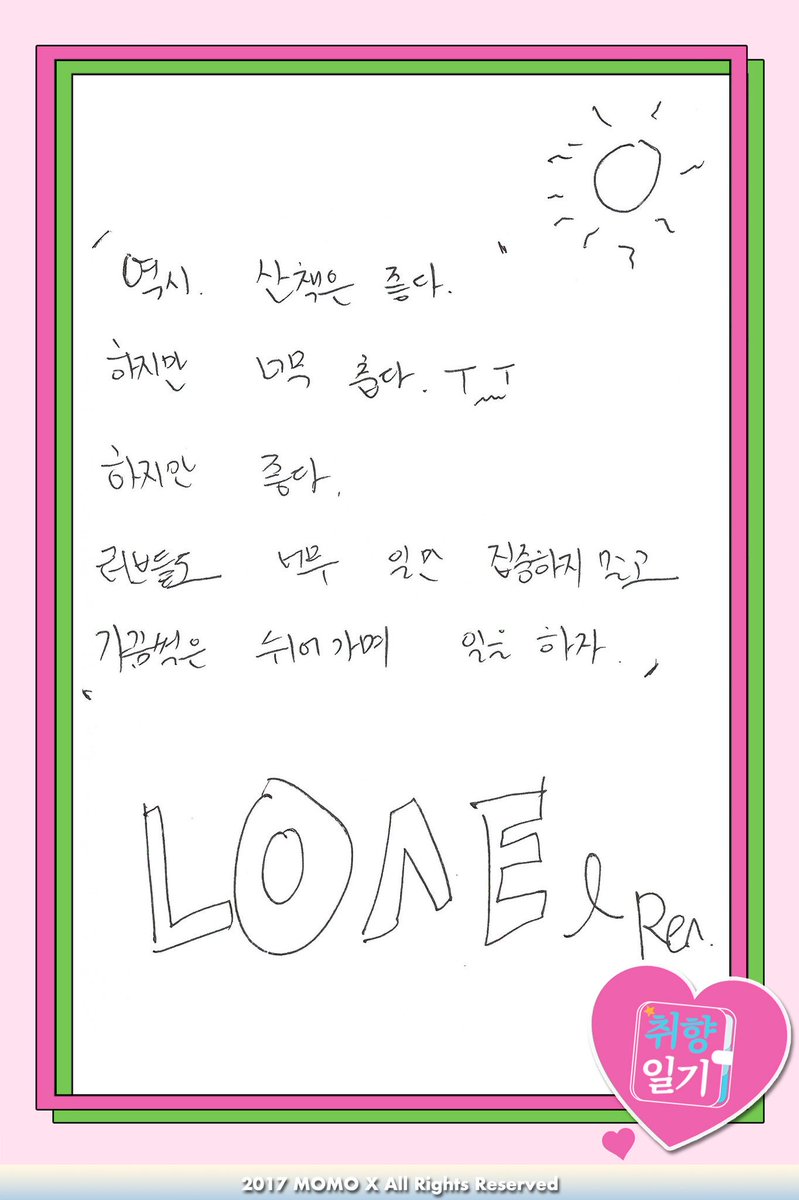 " 역시. 산책은 좋다. "
하지만 너무 춥다. T_T
하지만 좋다.
러브들도 너무 일만 집중하지 말고
가끔씩은 쉬어가며 일을 하자.
LOΛE
Ren.
취향
일기
2017 MOMO X All Rights Reserved